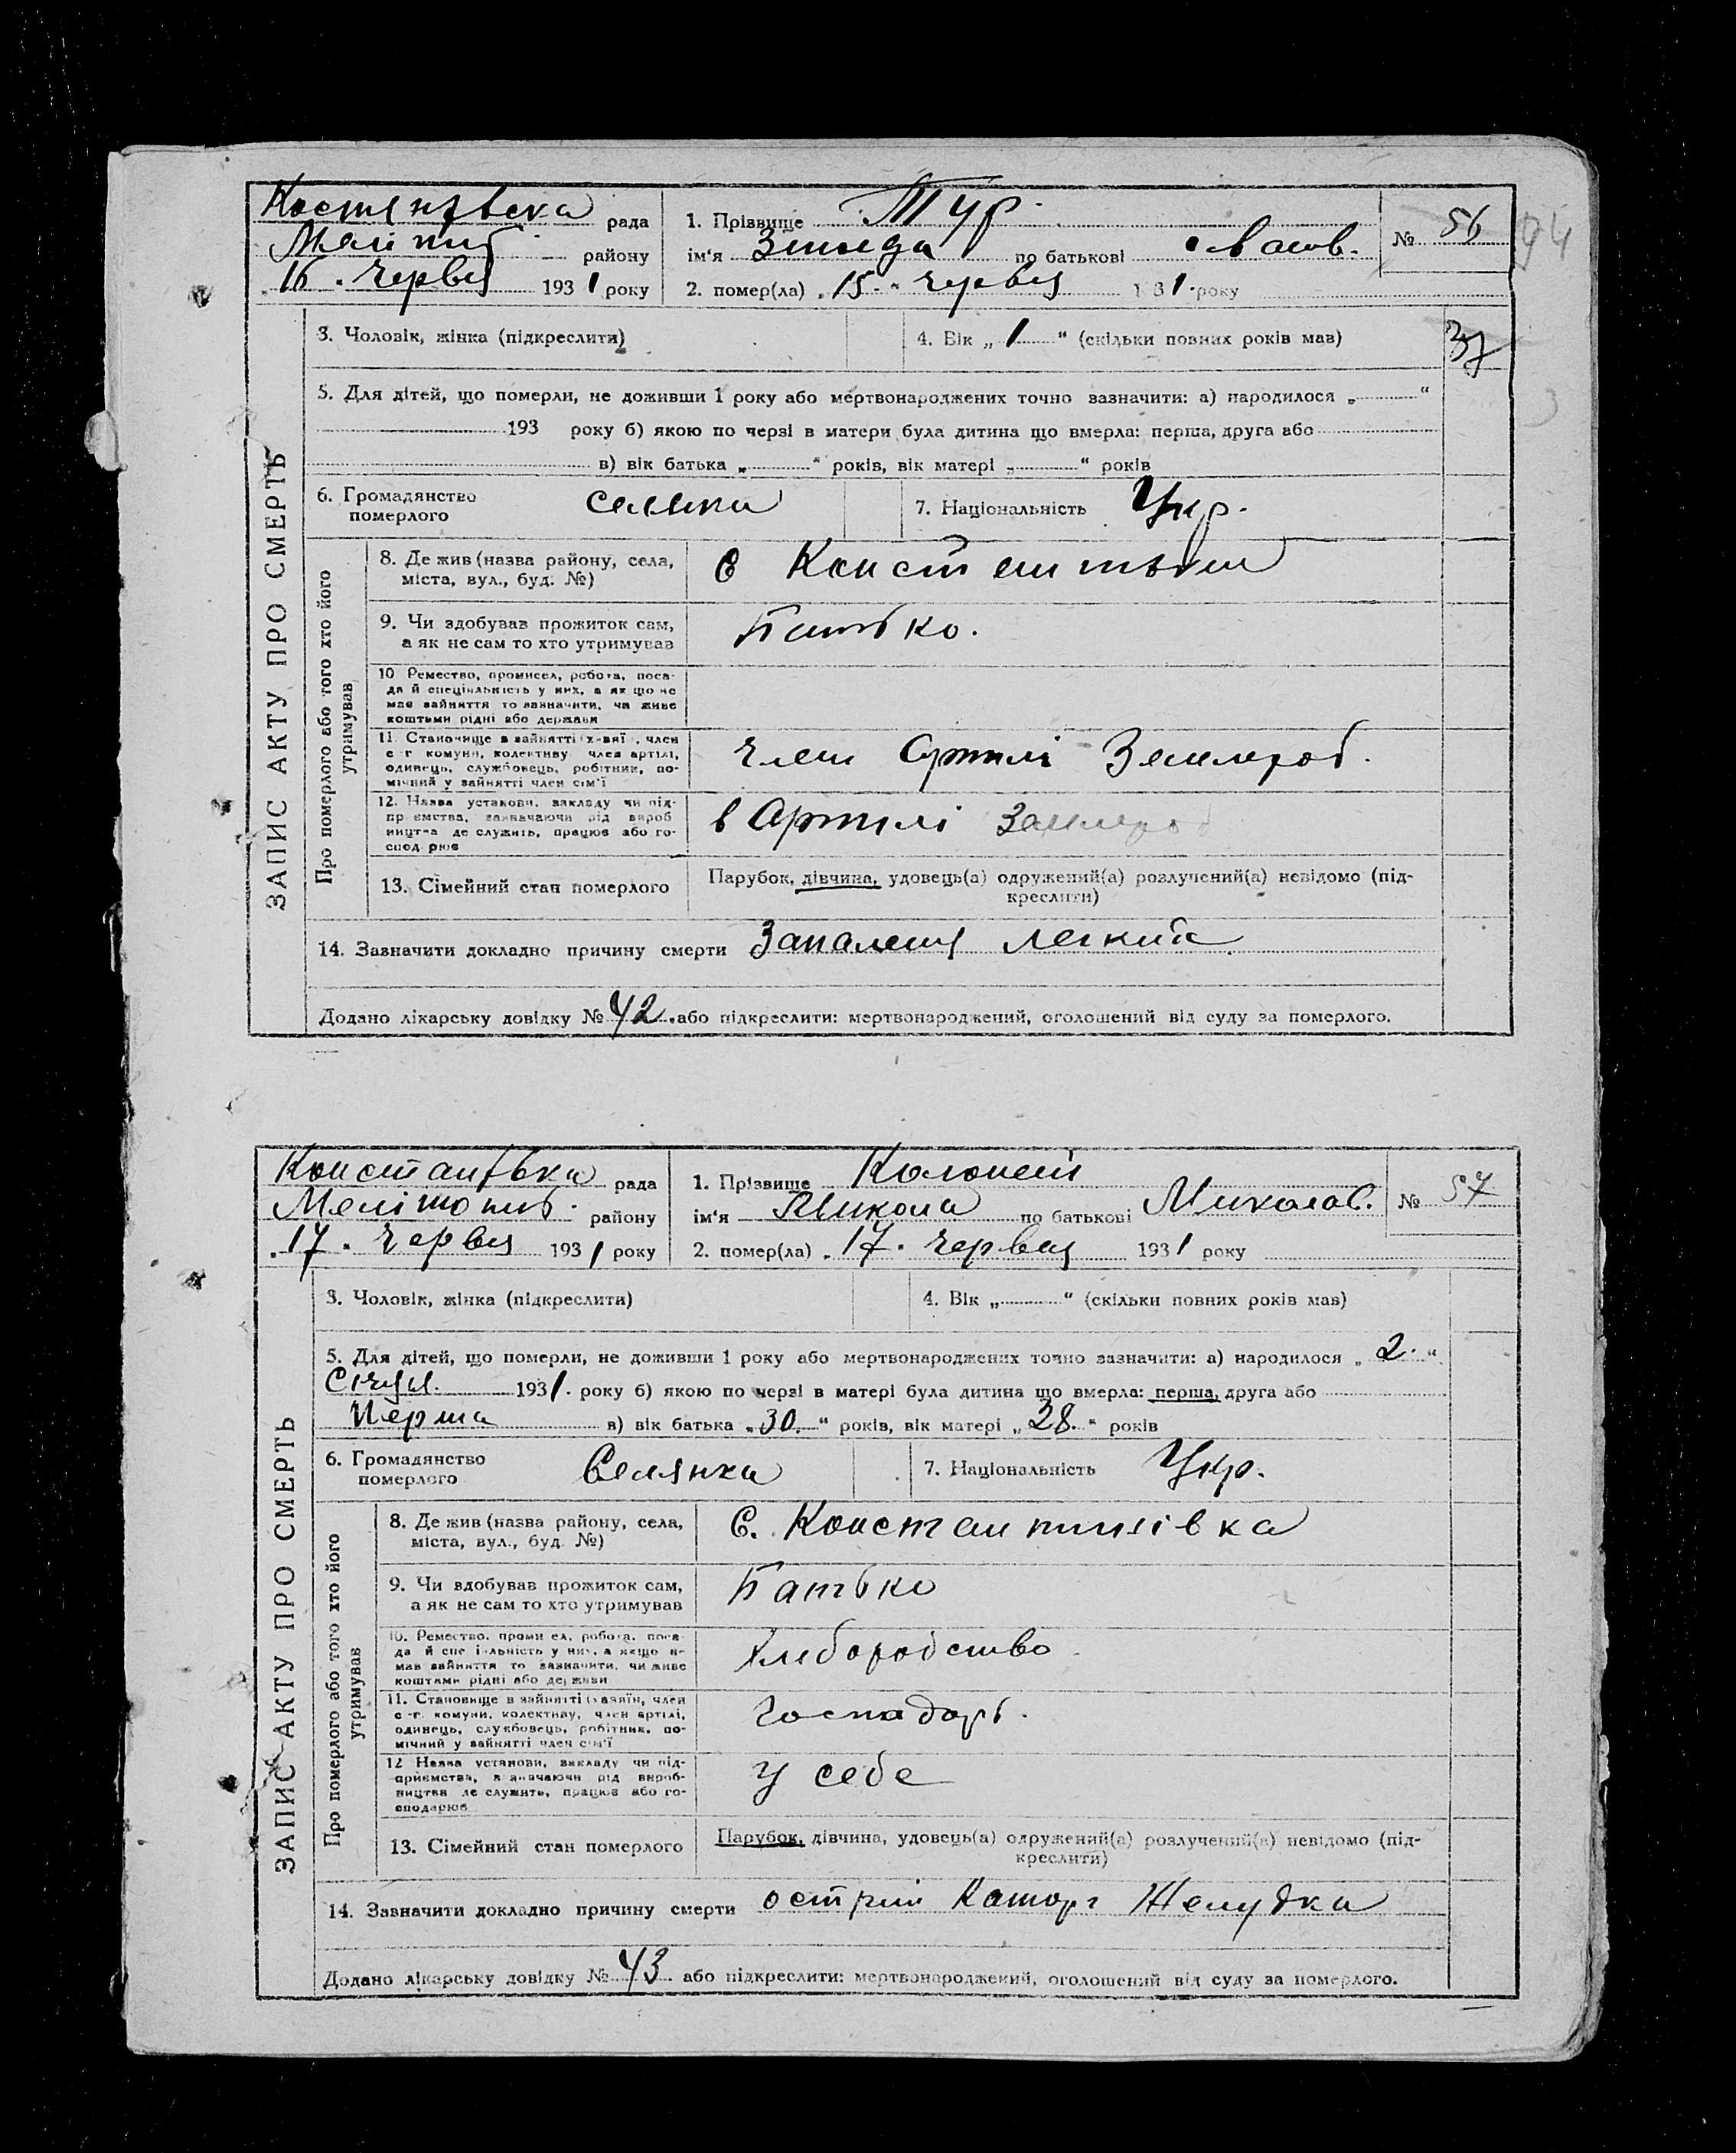 Костянтвска рада
Меліпит. району
"16" Червня 1931 року
1. Прізвище Тур.
ім'я Зинеда по батькові Васов.
2. помер(ла) "15" Червня 1931 року
№ 56
94
3. Чоловік, жінка (підкреслити)
4. Вік „1“ (скільки повних років мав)
37
5. Для дітей, що померли, не доживши 1 року або мертвонароджених точно зазначити: а) народилося „ “
193 року б) якою по черзі в матери була дитина що вмерла: перша, друга або
в) вік батька „ “ років, вік матері „ “ років
6. Громадянство померлого селянка
7. Національність Укр.
ЗАПИС АКТУ ПРО СМЕРТЬ
Про померлого або того хто його утримував
8. Де жив (назва району, села,
міста, вул., буд. №)
с
9. Чи здобував прожиток сам,
а як не сам то хто утримував
Батько.
10 Ремество, промисел, робота, поса-
да й спеціяльність у них, а як що не
має зайняття то зазначити, чи живе
коштами рідні або держави
11. Становище в зайнятті (х-зяї , член
с-г комуни, колективу член артілі,
одинець, службовець, робітник, по-
мічний у зайнятті член сім'ї
Член Артилі Землероб.
12. Назва установи, закладу чи під-
пр ємства, зазначаючи рід вироб
ництва де служить, працює або го-
спод рює
в Артилі Землероб
13. Сімейний стан померлого
Парубок, дівчина, удовець(а) одружений(а) розлучений(а) невідомо (під-
креслити)
14. Зазначити докладно причину смерти Запаленя Легкий
Додано лікарську довідку № 42. або підкреслити: мертвонароджений, оголошений від суду за померлого.
Константвка рада
Мелітопит. району
"17" Червня 1931 року
1. Прізвище Колопей
ім'я Микола по батькові Миколав.
2. помер(ла) "17" Червня 1931 року
№ 57
3. Чоловік, жінка (підкреслити)
4. Вік „ “ (скільки повних років мав)
5. Для дітей, що померли, не доживши 1 року або мертвонароджених точно зазначити: а) народилося „2.“
Січня. 1931. року б) якою по черзі в матері була дитина що вмерла: перша, друга або
Перша в) вік батька „30.“ років, вік матері „28.“ років
6. Громадянство померлого Селянка
7. Національність Укр.
ЗАПИС АКТУ ПРО СМЕРТЬ
Про померлого або того хто його утримував
8. Де жив (назва району, села,
міста, вул., буд. №)
С. Константинівка
9. Чи здобував прожиток сам,
а як не сам то хто утримував
Батько
10. Ремество, проми ел, робота, поса-
да й спе і льність у них, а якщо н-
мав зайняття то зазначити, чи живе
коштами рідні або держави
Хлебородство
11. Становище в зайнятті (хазяїн, член
с-г. комуни, колективу, член артілі,
одинець, службовець, робітник, по-
мічний у зайнятті член сім'ї
Господарь.
12 Назва установи, закладу чи під-
приємства, з значаючи рід вироб-
ництва де служить, працює або го-
сподарює
У себе
13. Сімейний стан померлого
Парубок, дівчина, удовець(а) одружений(а) розлучений(а) невідомо (під-
креслити)
14. Зазначити докладно причину смерти острий Катарг Желудка
Додано лікарську довідку № 43 або підкреслити: мертвонароджений, оголошений від суду за померлого.